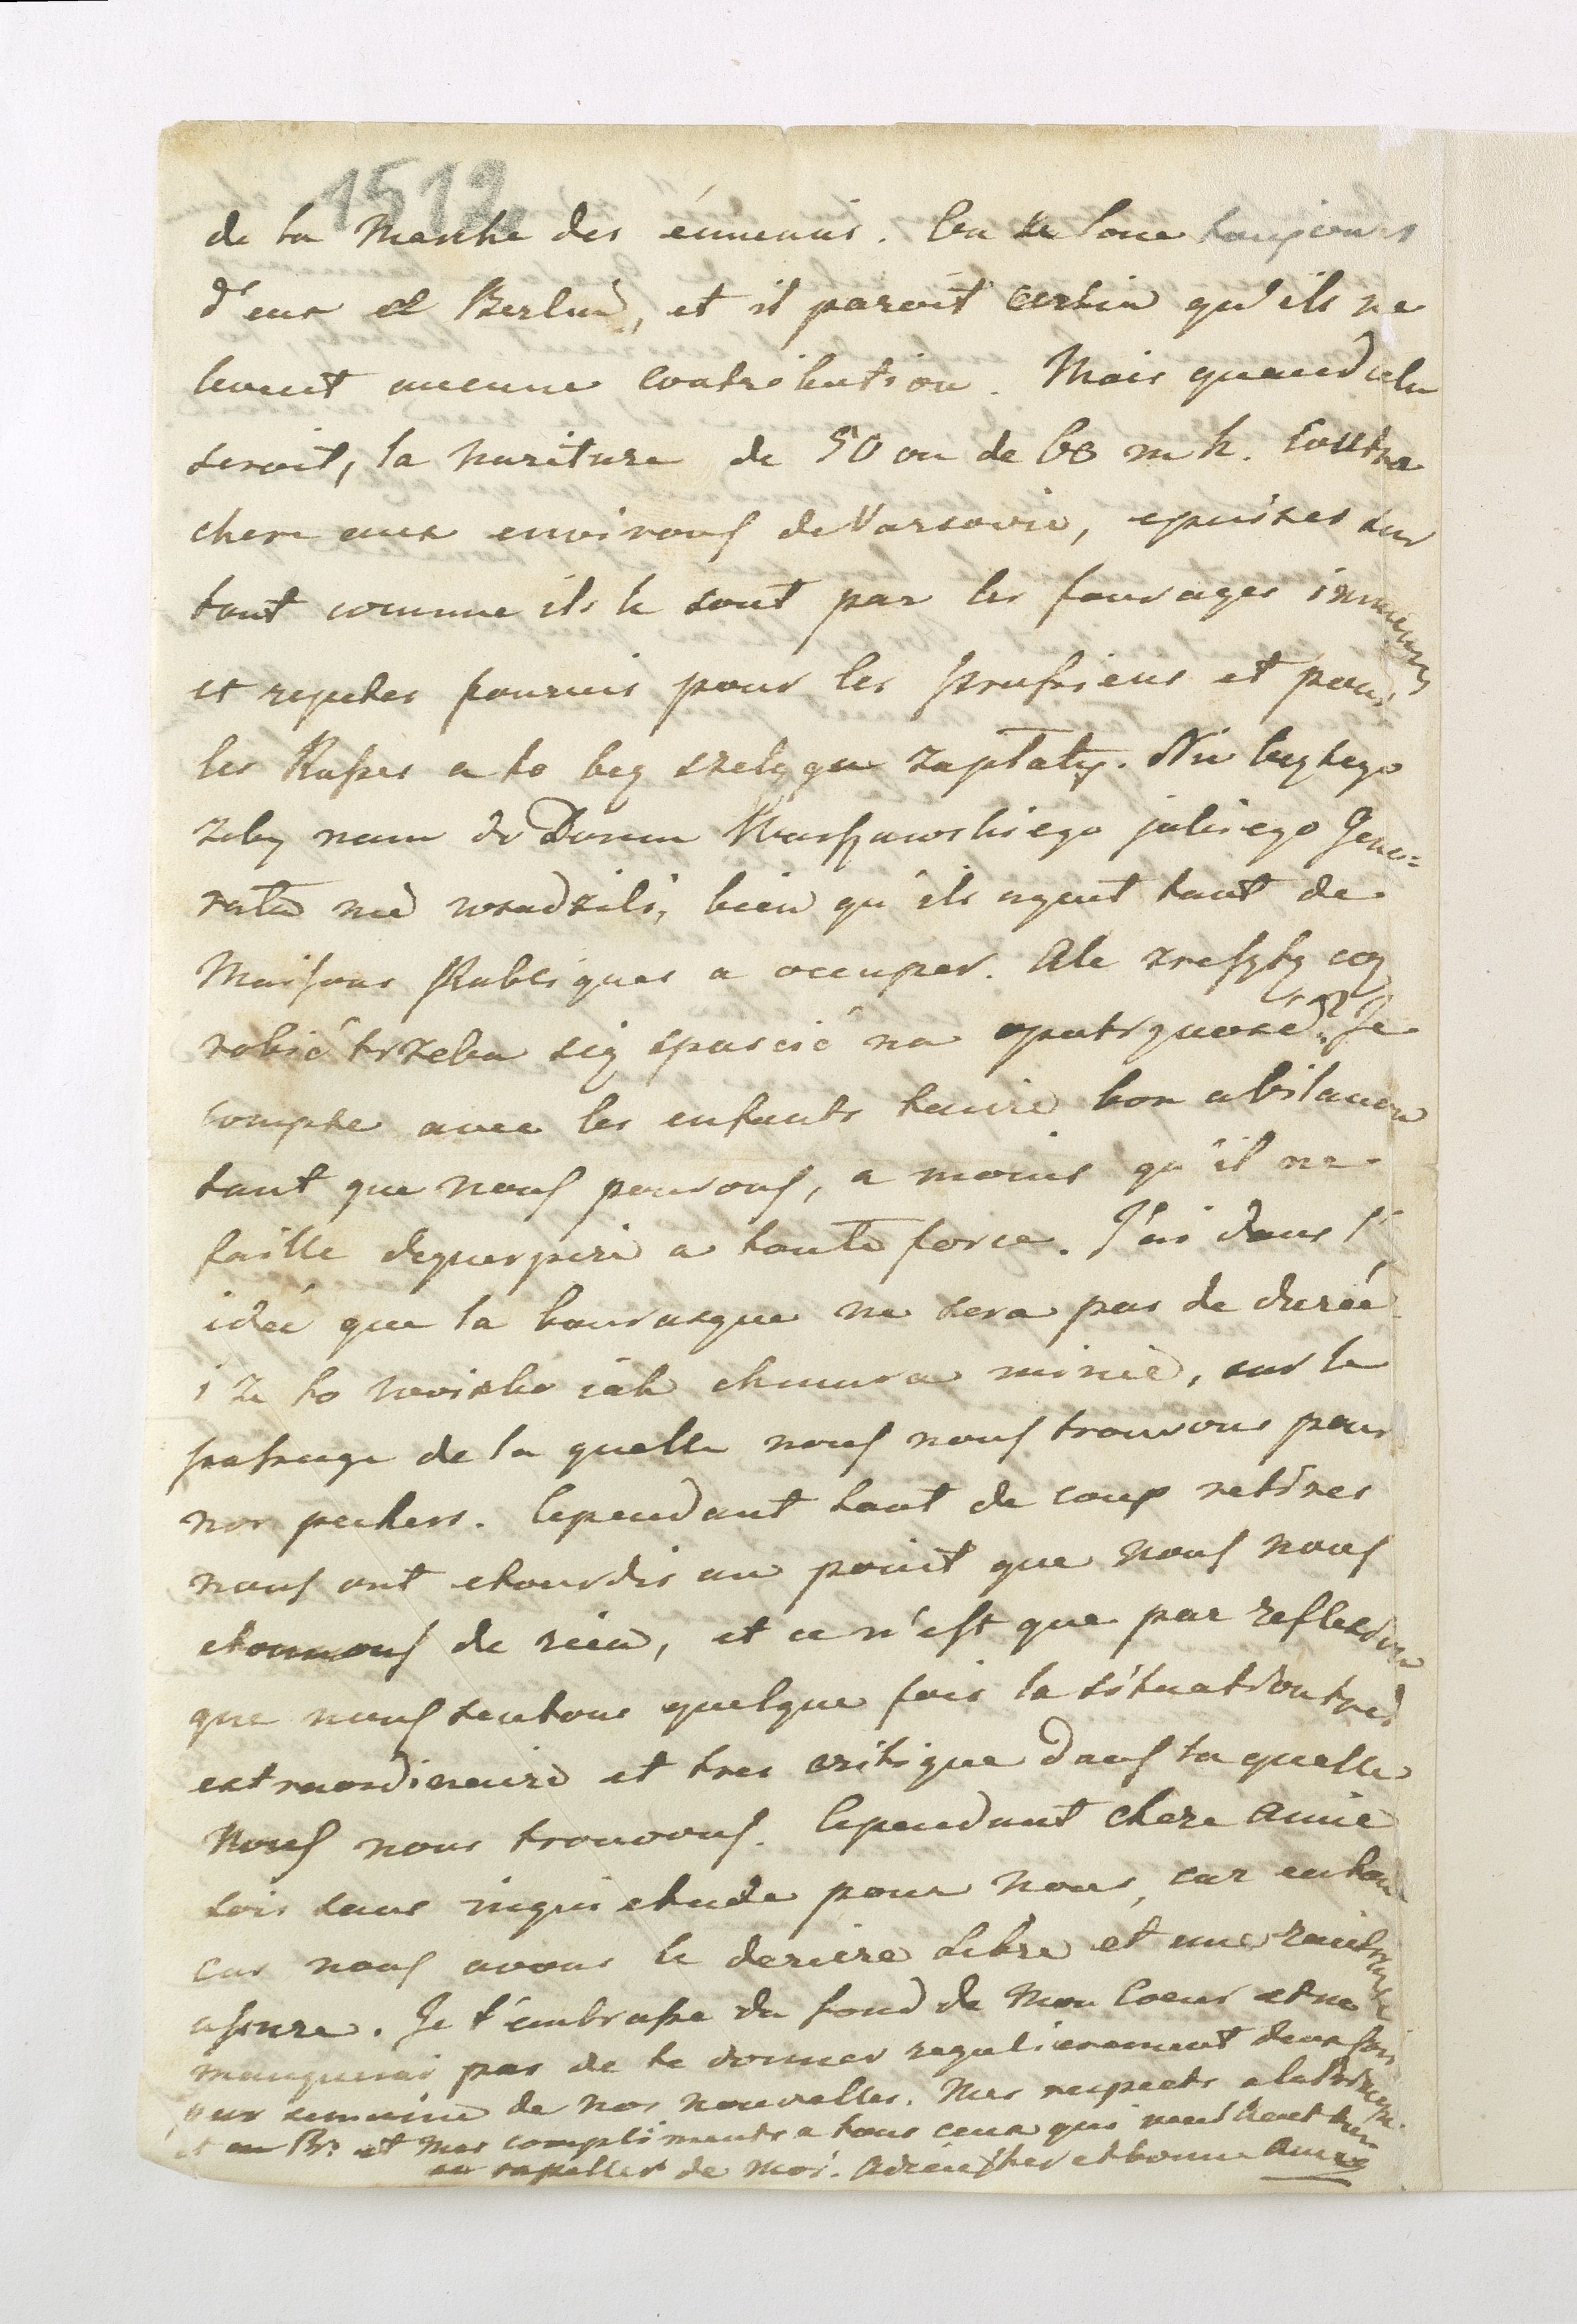 1512
de la Marche des énnemis. On se loue toujours
d'eux a Berlin, et il paroit certin qu'ils ne
levent aucune contribution. Mais quand cela
seroit, la nuriture de 50 ou de 60 m h. coutera
chere aux environs de Varsovie, epuisés sur
tout comme ils le sont par les fourages immenses
et repetes fournis pour les Prussiens et pour
les Russes a to bez szelązga zapłaty. Nie bez tego
zeby nam do Domu Warszawskiego jakiego Gene=
rała nie wsadzili, bien qu'ils ayent tant de
Maisons Publiques a occuper. Ale zresztą coz
robić trzeba się spuscić na opatrznosć. Je
compte avec les enfants tenire bon a Vilanow
tant que nous pourons, a moins qu'il ne
faille deguerpire a toute force. J'ai dans l'
idée que la bourasque ne sera pas de durée
i ze to wszisko iak chmura minie, sur le
passage de la quelle nous nous trouvons pour
nos pechers. Cependant tant de coup retires
nous ont etourdis au point que nous nous
etonnons de rien, et ce n'est que par reflexion
que nous sentons quelque fois la situation tres
extraordinaire et tres critique dans la quelle
Nous nous trouvons. Cependant chere Amie
sois sans inquietude pour nous, car en tout
cas nous avons le deriere libre et une retraite
assure. Je t'embrasse du fond de Mon Coeur et ne
manquerai pas de te donner regulierement deux fois
par semaine de nos nouvelles. Mes respects a la Princesse
et au Pr: et Mes compliments a tous ceux qui veulent bien
se rapeller de Moi. Adieu cher et bonne Amie